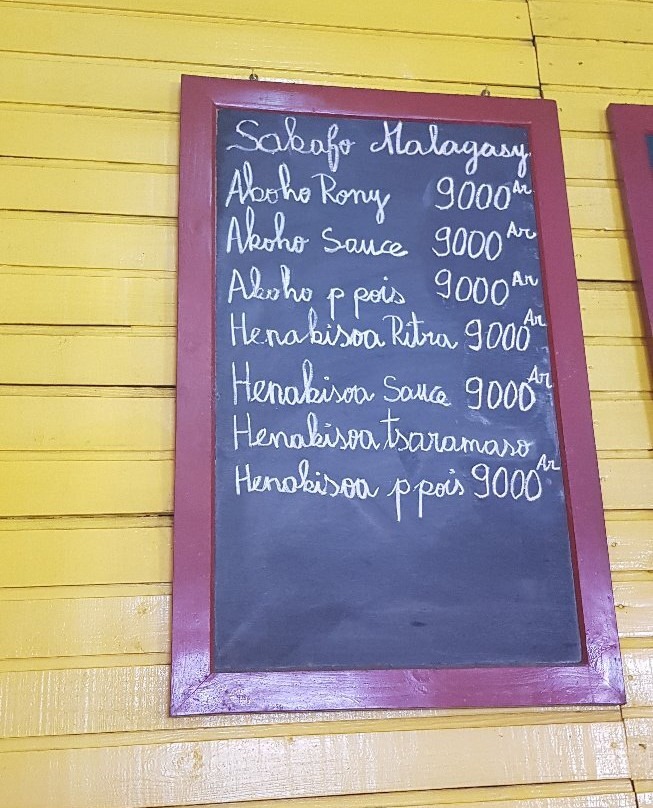 Sakafo Malagasy
Akoho Rony 9000 Ar
Akoho Sauce 9000 Ar
Akoho p pois 9000 Ar
Henakisoa Ritra 9000 Ar
Henakisoa Sauce 9000 Ar
Henakisoa tsaramaso
Henakisoa p pois 9000 Ar